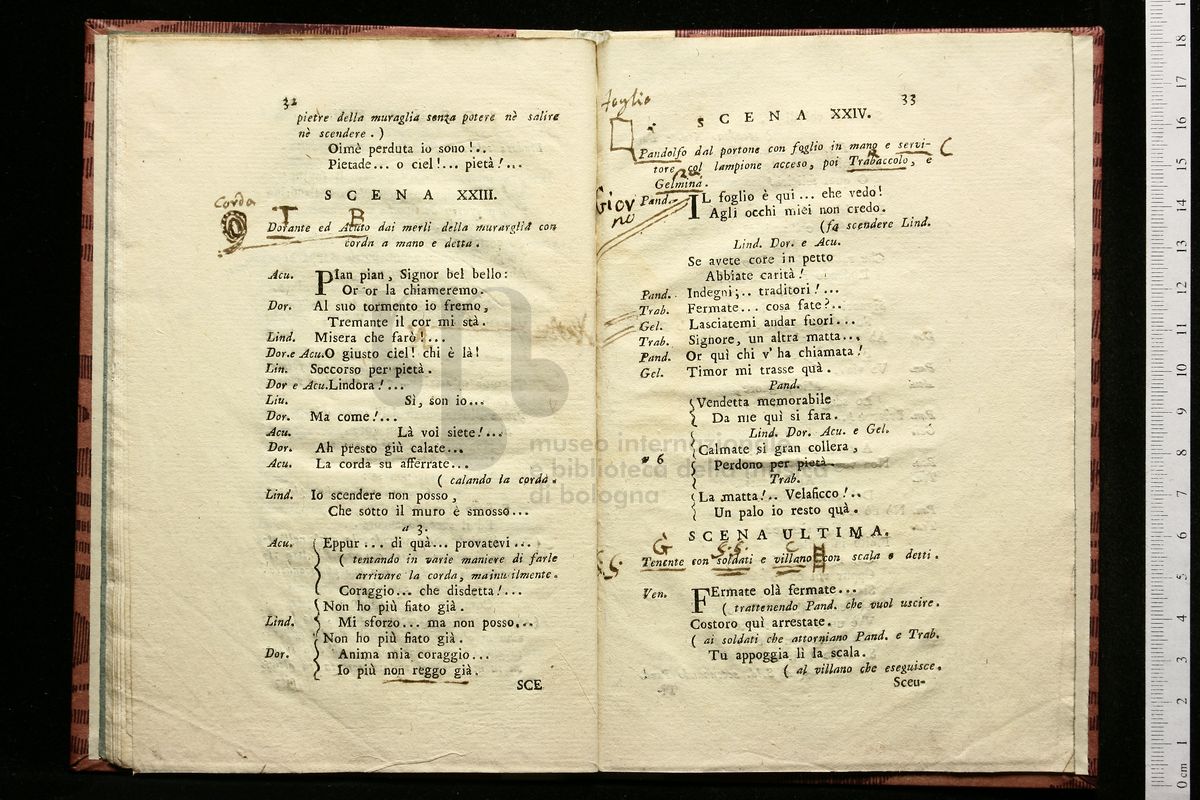 32
pietre della muraglia senza potere nè salire
nè scendere . )
Oimè perduta io sono !..
Pietade... o ciel !... pietà !...
SCENA XXIII.
Corda
T B
Dorante ed Acuto dai merli della murarglia con
corda a mano e detta .
Acu. PIan pian , Signor bel bello :
Or or la chiameremo .
Dor. Al suo tormento io fremo ,
Tremante il cor mi stà .
Lind. Misera che farò !...
Dor.e Acu. O giusto ciel ! chi è là !
Lin. Soccorso per pietà .
Dor e Acu. Lindora ! ...
Liu. Sì, son io...
Dor. Ma come !...
Acu. Là voi siete !...
Dor. Ah presto giù calate...
Acu. La corda su afferrate...
( calando la corda .
Lind. Io scendere non posso ,
Che sotto il muro è smosso...
a 3.
Acu. Eppur ... di quà... provatevi ...
( tentando in varie maniere di farle
arrivare la corda, mainutilmente .
Coraggio... che disdetta !...
Non ho più fiato già .
Lind. Mi sforzo... ma non posso...
Non ho più fiato già .
Dor. Anima mia coraggio...
Io più non reggo già .
SCE
foglio
33
SCENA XXIV.
Pandolfo dal portone con foglio in mano e servi-
tore col lampione acceso, poi Trabaccolo, e
Gelmina .
C
Giov
no
Pand. IL foglio è qui ... ehe vedo !
Agli occhi miei non credo .
(fa scendere Lind.
Lind. Dor. e Acu.
Se avete core in petto
Abbiate carità !
Pand. Indegni ;.. traditori !...
Trab. Fermate... cosa fate ?..
Gel. Lasciatemi andar fuori...
Trab. Signore, un altra matta...
Pand. Or quì chi v' ha chiamata !
Gel. Timor mi trasse quà .
Pand.
Vendetta memorabile
Da me quì si fara .
Lind. Dor. Acu. e Gel.
Calmate si gran collera ,
a 6
Perdono per pietà .
Trab.
La matta !.. Velaficco !..
Un palo io resto quà .
SCENA ULTIMA.
G S.S. C
Tenente con soldati e villano con scala e detti .
S.S.
Ven. FErmate olà fermate...
( trattenendo Pand. che vuol uscire .
Costoro quì arrestate .
( ai soldati che attorniano Pand. e Trab.
Tu appoggia lì la scala .
( al villano che eseguisce .
Sceu-
museo internazionale
e biblioteca della musica
di bologna
0 cm 1 2 3 4 5 6 7 8 9 10 11 12 13 14 15 16 17 18